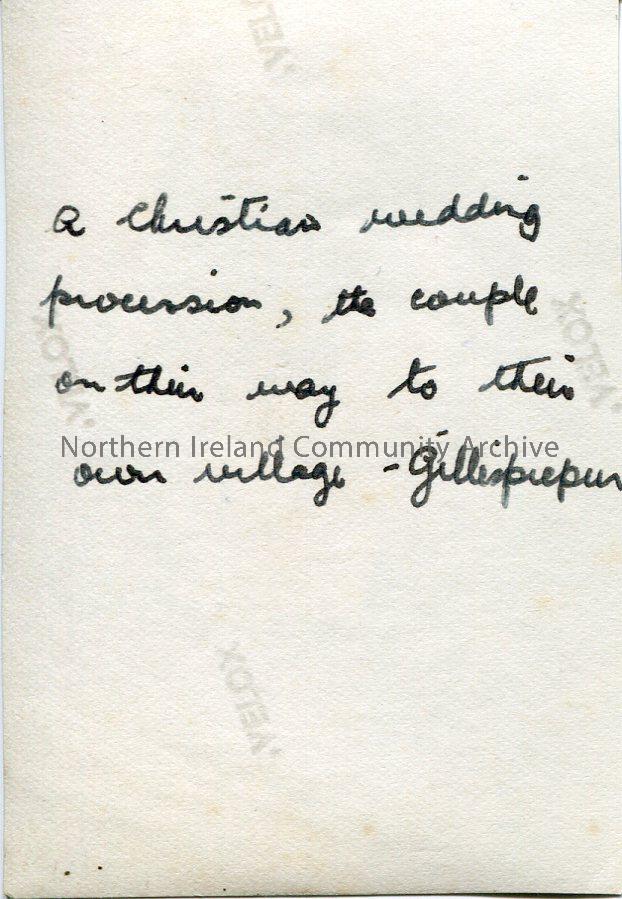 VELOX
a Christian wedding
procession, the couple
VELOX
VELOX
on their way to their
Northern Ireland Community Archive
own village - Gillespiepur
VELOX